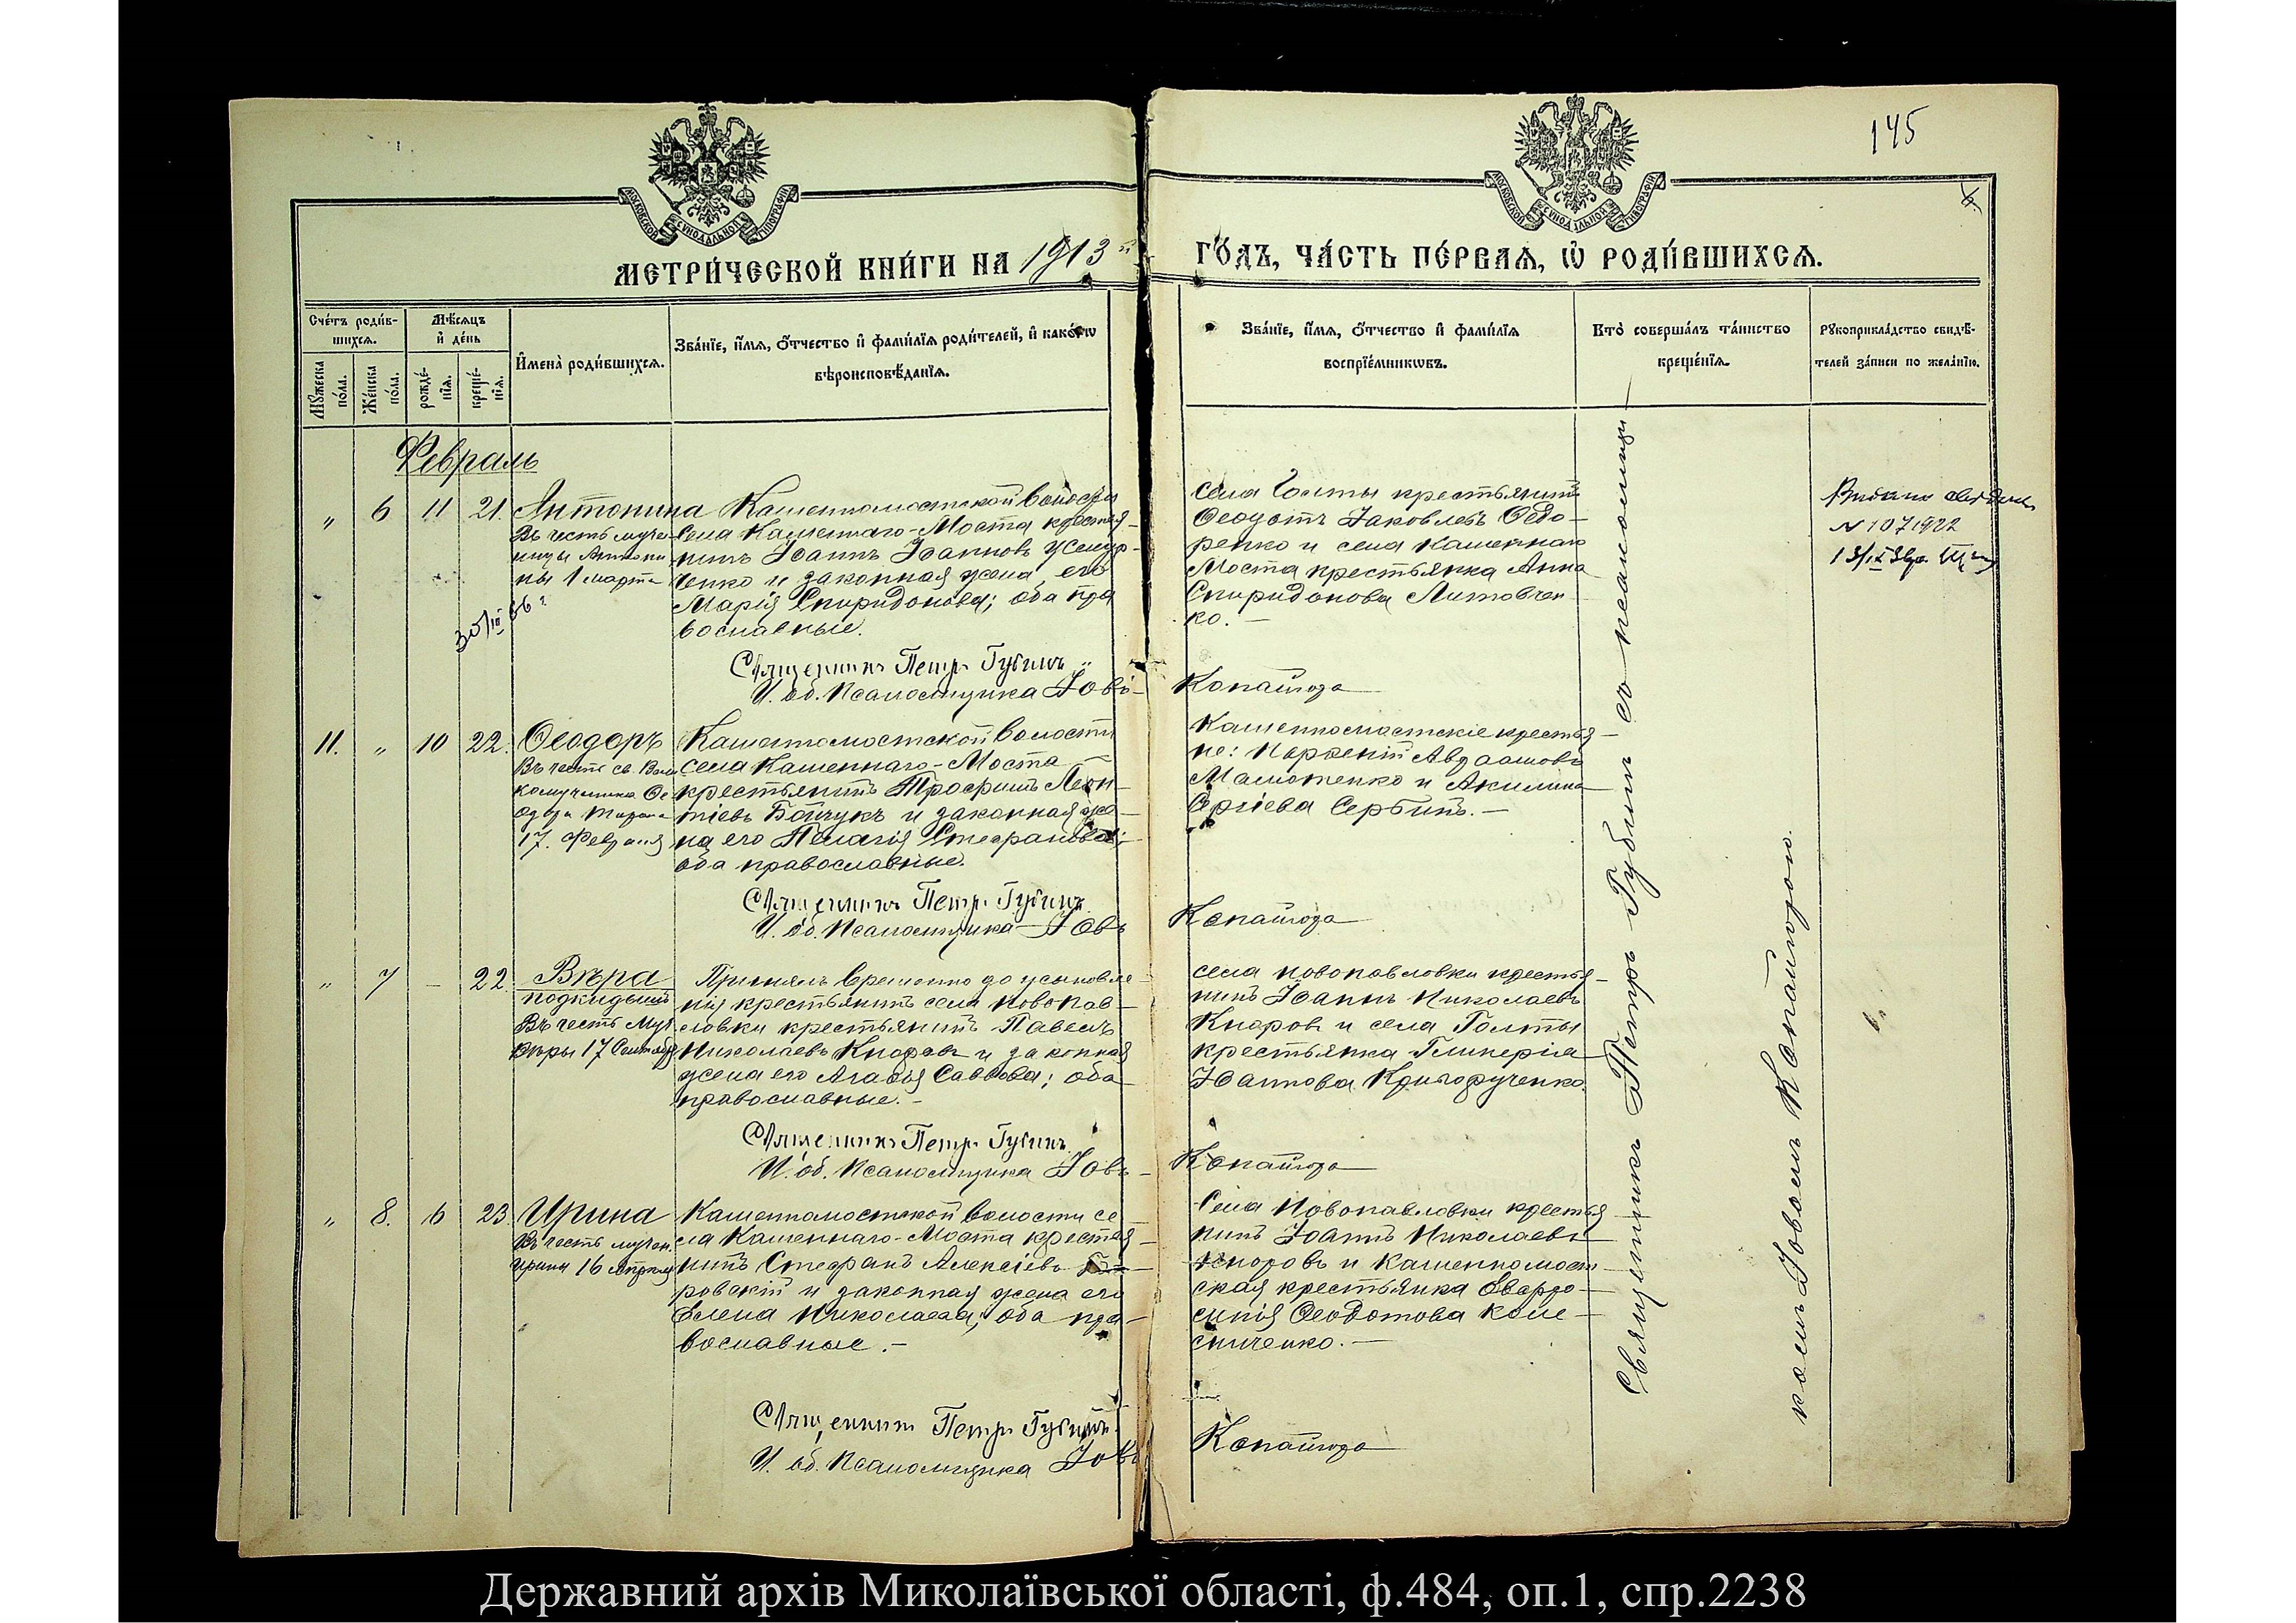 145
МОСКОВСКОЙ СѴНОДАЛЬНОЙ ТИПОГРАФІИ
МОСКОВСКОЙ СѴНОДАЛЬНОЙ ТИПОГРАФІИ
МЕТРИ́ЧЕСКОЙ КНИ́ГИ НА 1913й ГО́ДЪ, ЧА́СТЬ ПЕ́РВАѦ, Ѡ҆ РОДИ́ВШИХСѦ.
Сче́тъ роди́в-
шихсѧ.
Мꙋ́жеска по́ла.
Же́нска по́ла.
Мѣ́сѧцъ
и҆ де́нь
рожде́-
нїѧ.
креще́-
нїѧ.
И҆мена̀ роди́вшихсѧ.
Зва́нїе, и҆́мѧ, ѻ҆́тчество и҆ фами́лїѧ роди́телей, и҆ како́гѡ
вѣроисповѣ́данїѧ.
Зва́нїе, и҆́мѧ, ѻ҆́тчество и҆ фами́лїѧ
воспрїе́мникѡвъ.
Кто̀ соверша́лъ та́инство
креще́нїѧ.
Рꙋкоприкла́дство свидѣ́-
телей за́писи по жела́нїю.
Февраль
" 6 11 21. Антонина
Въ честь муче-
ницы Антони
ны 1 марта
Каменномостской волости
села Каменнаго-Моста крестья-
нинъ Іоаннъ Іоанновъ
ченко и законная жена его
Марія Спиридонова; оба пра
вославные.
села Голты крестьянинъ
Ѳеодотъ Іаковлевъ Ѳедо-
ренко и села Каменнаго
Моста крестьянка Анна
Спиридонова Литовчен
ко.-
N 107 1922
Священникъ Петръ Губинъ
И. об. Псаломщика Іовъ Копайгода
11. " 10 22. Ѳеодоръ
Въ честь св. Вели
комученика Ѳе
одора Тирона
17. Февраля
Каменномостской волости
села Каменнаго-Моста
крестьянинъ Трофимъ Леон-
тіевъ Бойчукъ и законная же-
на его Пелагія Стефанова;
оба православные.
Каменномостскіе крестья-
не: Парѳеній
и Акилина
Сергіева Сербинъ.-
Священникъ Петръ Губинъ
И. об. Псаломщика Іовъ Копайгода
" 7 - 22. Вѣра
подкидышъ
Въ честь Муч.
Вѣры 17 Сентября
Принялъ временно до усыновле-
нія крестьянинъ села Новопав-
ловки крестьянинъ Павелъ
Николаевъ Кнаровъ и законная
жена его Агафія Саввова; оба
православные.-
села Новопавловки крестья-
нинъ Іоаннъ Николаевъ
Кнаровъ и села Голты
крестьянка Гликерія
Іоаннова
Священникъ Петръ Губинъ
И. об. Псаломщика Іовъ Копайгода
" 8. 16 23 Ирина
Въ честь мучен.
Ирины 16 Апрѣля
Каменномостской волости се
ла Каменнаго-Моста крестья-
нинъ Стефанъ Алексіевъ
ровскій и законная жена его
Елена Николаева; оба пра-
вославные.-
Села Новопавловки крестья
нинъ Іоаннъ Николаевъ
Кноровъ и Каменномост-
ская крестьянка Евфро-
синія Ѳеодотова Коле-
сниченко.-
Священникъ Петръ Губинъ
И. об. Псаломщика Іовъ Копайгода
Священникъ Петръ Губинъ со псаломщи-
комъ Іовомъ Копайгодою.
Державний архів Миколаївської області, ф.484, оп.1, спр.2238